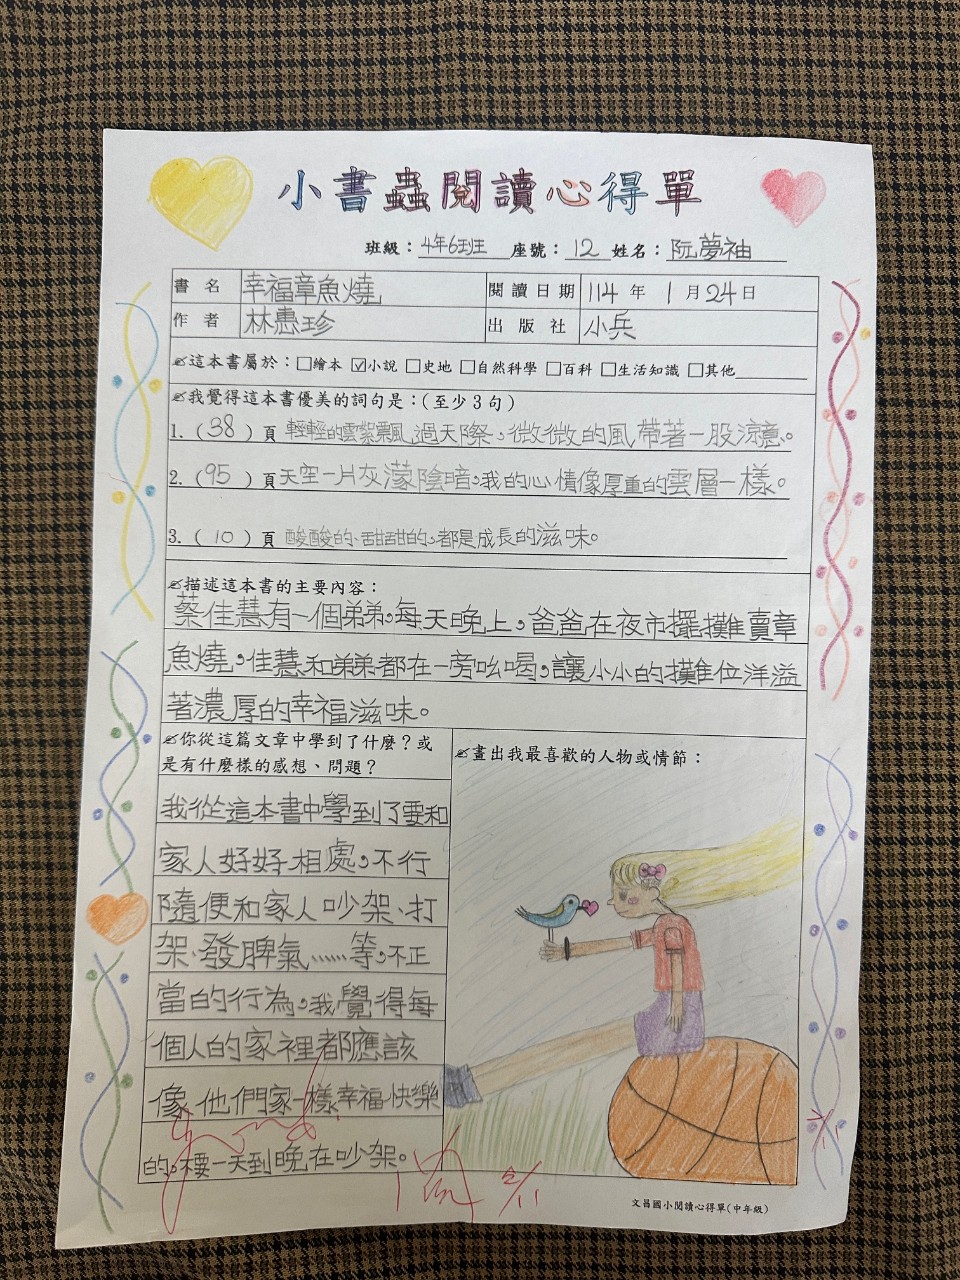 小書蟲閱讀心得單
班級：4年6班 座號：12 姓名：阮夢袖
書名 幸福章魚燒 閱讀日期 114年1月24日
作者 林惠珍 出版社 小兵
這本書屬於：□繪本 ☑小說 □史地 □自然科學 □百科 □生活知識 □其他
我覺得這本書優美的詞句是：(至少3句)
1.(38)頁 輕輕的雲絮飄過天際，微微的風帶著一股涼意。
2.(95)頁 天空一片灰濛陰暗，我的心情像厚重的雲層一樣。
3.(10)頁 酸酸的、甜甜的，都是成長的滋味。
描述這本書的主要內容：
蔡佳慧有一個弟弟，每天晚上，爸爸在夜市擺攤賣章
魚燒，佳慧和弟弟都在一旁吆喝，讓小小的攤位洋溢
著濃厚的幸福滋味。
你從這篇文章中學到了什麼？或
是有什麼樣的感想、問題？
我從這本書中學到了要和
家人好好相處，不行
隨便和家人吵架、打
架、發脾氣……等，不正
當的行為，我覺得每
個人的家裡都應該
像他們家一樣幸福快樂
的，不要一天到晚在吵架。
畫出我最喜歡的人物或情節：
2/11
文昌國小閱讀心得單(中年級)